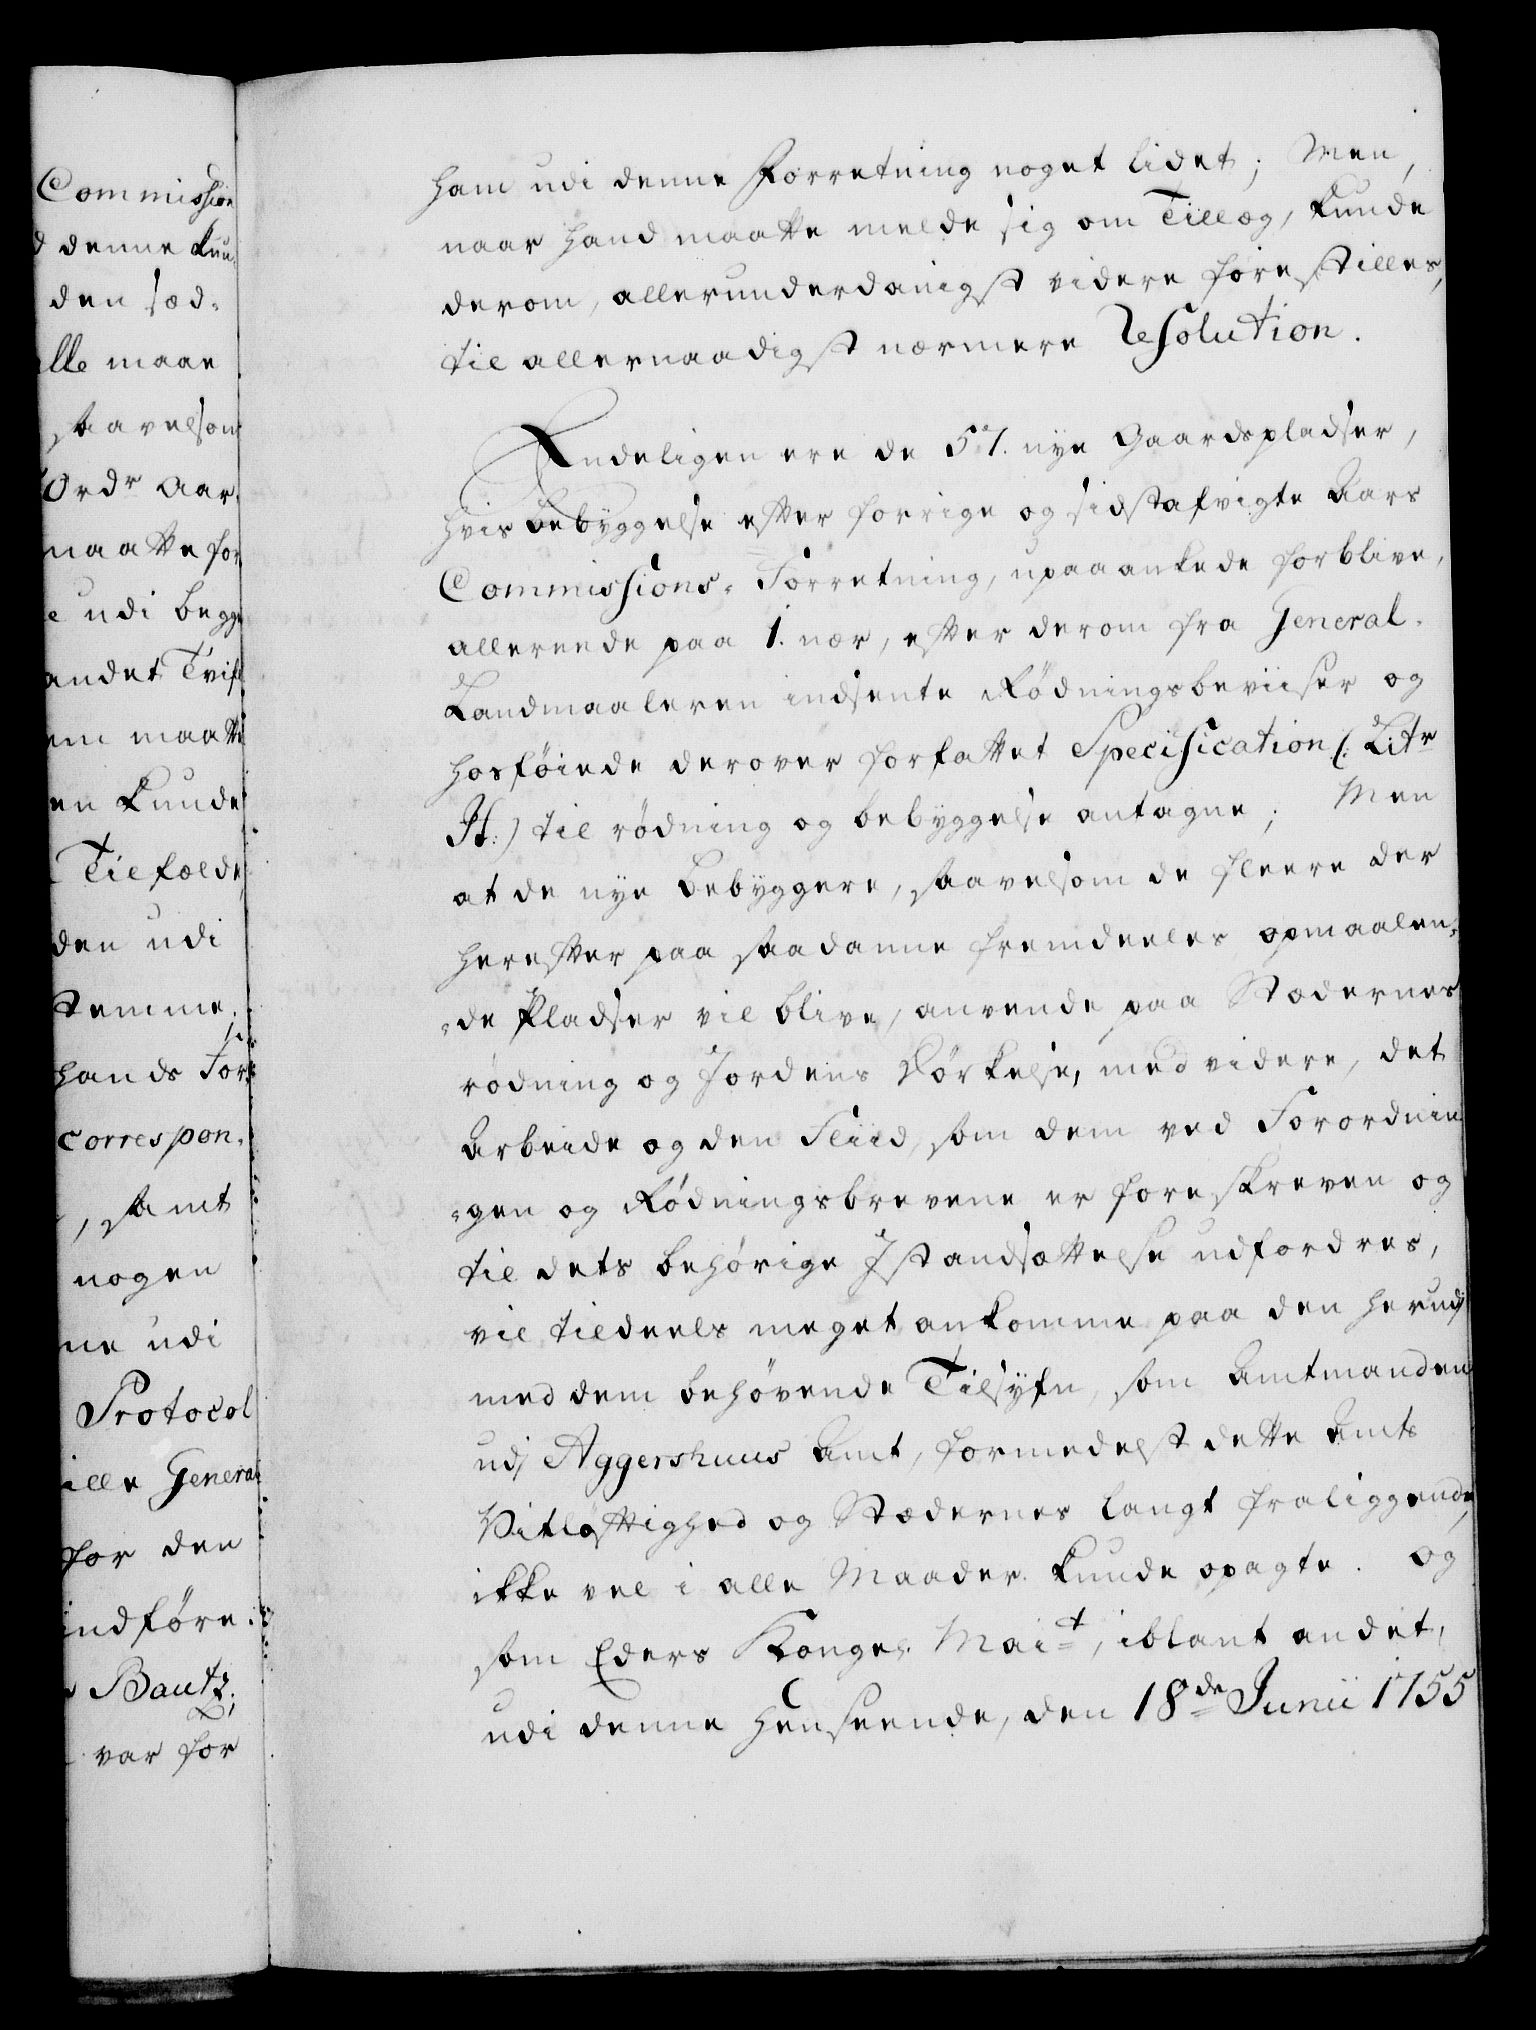 Commission
denne kun-
den sæd-
lle maae
saavelsom
Ordr Aar,
maatte for
udi begge
andet Tvifl
em maatte
en kunde
Tiefælde
den udi
stemme.
hands For
correspon-
, samt
nogen
ne udi
Protocol
ille General
for den
indføre.
Bautz;
var for
ham udi denne Forretning noget lidet; Men,
naar hand maatte melde sig om Tillæg, kunde
derom, allerunderdanigst videre forestilles,
til allernaadigst nærmere Resolution.
Endeligen ere de 57. nye Gaardspladser,
hvis bebyggelse efter forrige og sidstafvigte Aars
Commissions-Forretning, upaaankede forblive,
allerede paa 1. nær, efter derom fra General-
Landmaaleren indsente Rødningsbeviiser og
hosføiede derover forfattet Specification (: Litr
H:) til rødning og bebyggelse antagne; Men
at de nye Bebyggere, saavelsom de fleere der
herefter paa saadanne fremdeeles opmaalen-
-de Pladser vil blive, anvende paa Stædernes
rødning og Jordens dørkelse, med videre, det
Arbeide og den Fliid, som dem ved Forordnin
-gen og Rødningsbrevene er foreskreven og
til dets behørige Istandsættelse udfordres,
vil tildeels meget ankomme paa den herudj
med dem behøvende Tilsyfn, som Amtmanden
udj Aggershuus Amt, formedelst dette Amts
Vitløftighed og Stædernes langt fraliggende,
ikke vel i alle Maader kunde opagte. Og
som Eders Kongel. Mait, iblant andet,
udi denne henseende, den 18de Junii 1755